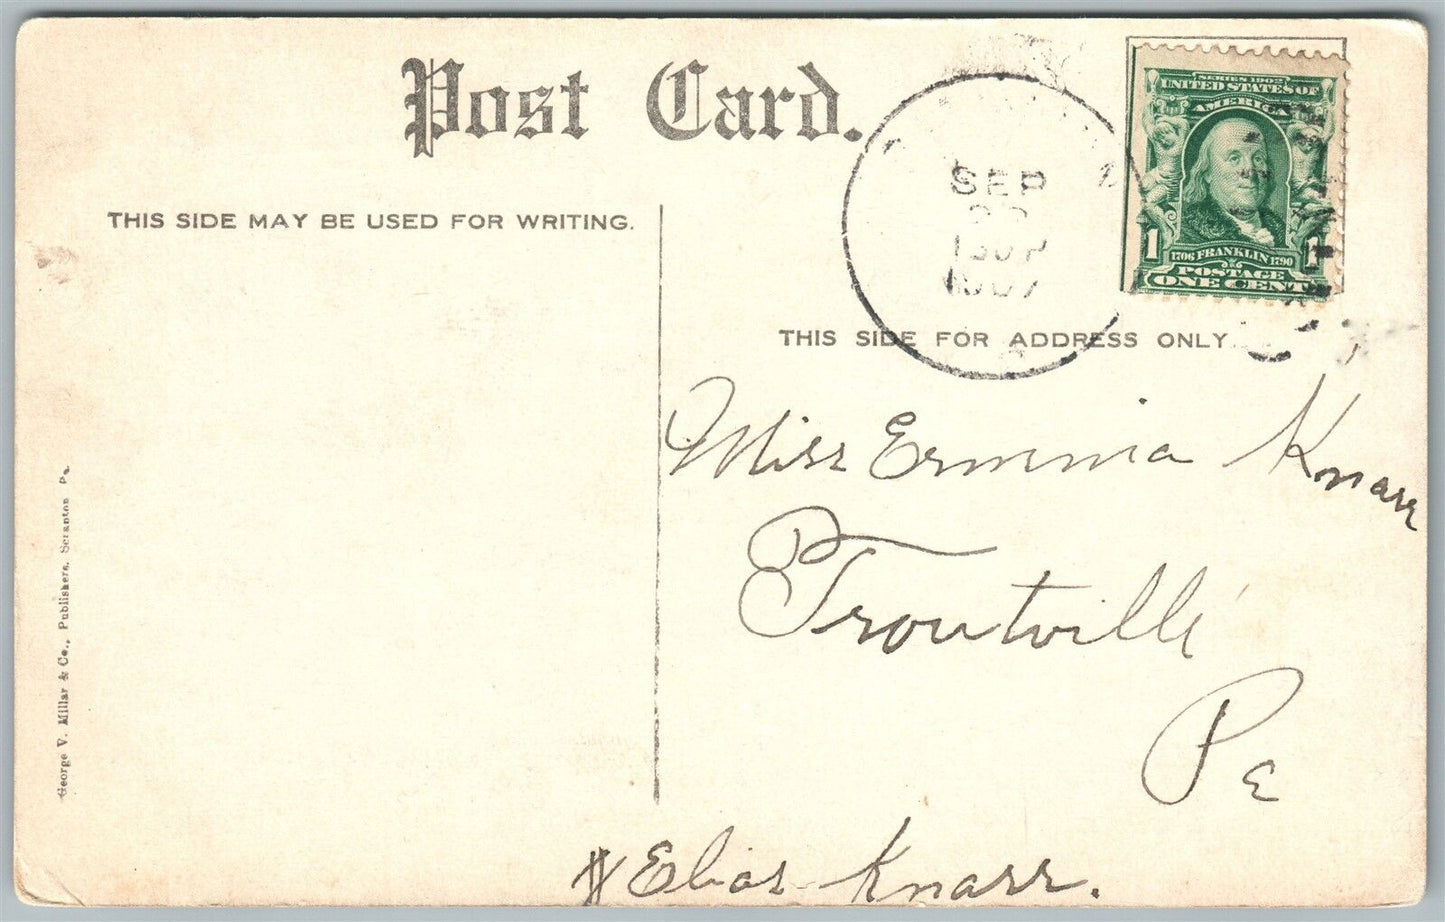 Post Card.
THIS SIDE MAY BE USED FOR WRITING.
SEP
1907
SERIES 1902
UNITED STATES OF
AMERICA
1 1706 FRANKLIN 1790 1
POSTAGE
ONE CENT
THIS SIDE FOR ADDRESS ONLY
Miss Ermmia Knarr
Troutville
Pa
Elias Knarr.
George V. Millar & Co., Publishers, Scranton Pa.